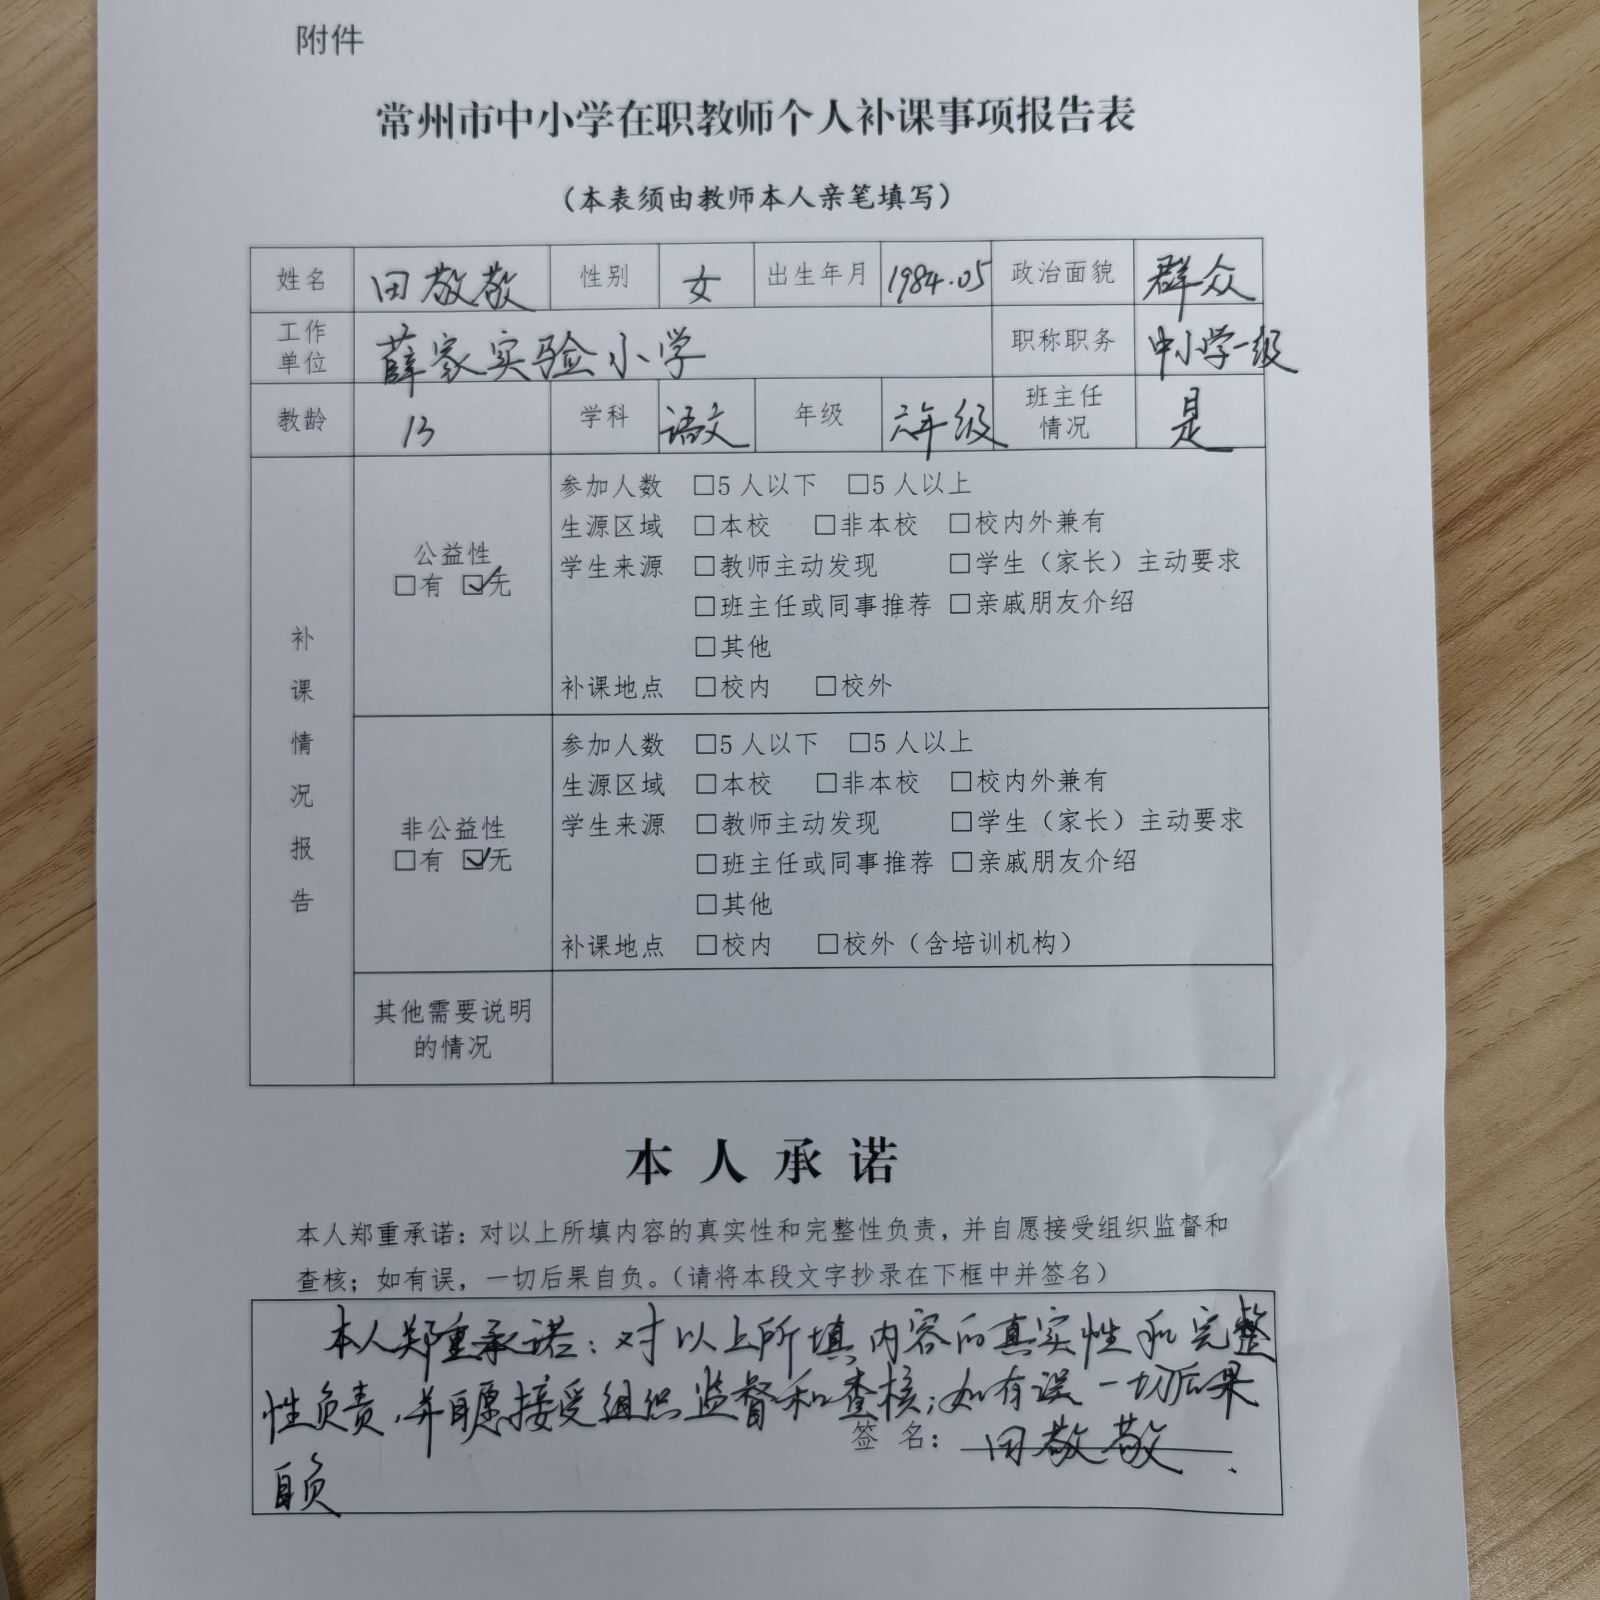 附件
常州市中小学在职教师个人补课事项报告表
（本表须由教师本人亲笔填写）
姓名 田敬敬 性别 女 出生年月 1984.05 政治面貌 群众
工作单位 薛家实验小学 职称职务 中小学一级
教龄 13 学科 语文 年级 六年级 班主任情况 是
补课情况报告
公益性
□有 ☑无
参加人数 □5人以下 □5人以上
生源区域 □本校 □非本校 □校内外兼有
学生来源 □教师主动发现 □学生（家长）主动要求
□班主任或同事推荐 □亲戚朋友介绍
□其他
补课地点 □校内 □校外
非公益性
□有 ☑无
参加人数 □5人以下 □5人以上
生源区域 □本校 □非本校 □校内外兼有
学生来源 □教师主动发现 □学生（家长）主动要求
□班主任或同事推荐 □亲戚朋友介绍
□其他
补课地点 □校内 □校外（含培训机构）
其他需要说明
的情况
本人承诺
本人郑重承诺：对以上所填内容的真实性和完整性负责，并自愿接受组织监督和
查核；如有误，一切后果自负。（请将本段文字抄录在下框中并签名）
本人郑重承诺：对以上所填内容的真实性和完整
性负责，并自愿接受组织监督和查核；如有误一切后果
签名：田敬敬
自负